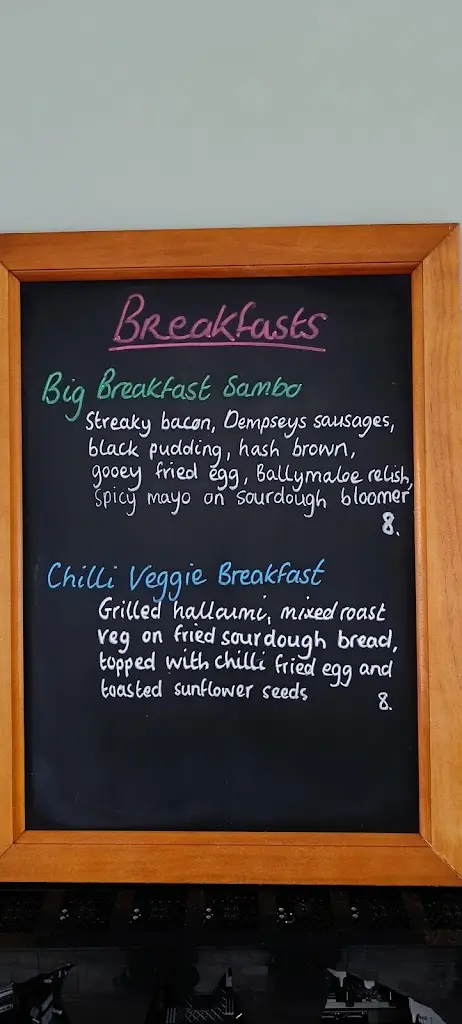 Breakfasts
Big Breakfast Sambo
Streaky bacon, Dempseys sausages,
black pudding, hash brown,
gooey fried egg, Ballymaloe relish,
Spicy mayo on sourdough bloomer
8.
Chilli Veggie Breakfast
Grilled halloumi, mixed roast
veg on fried sourdough bread,
topped with chilli fried egg and
toasted sunflower seeds
8.